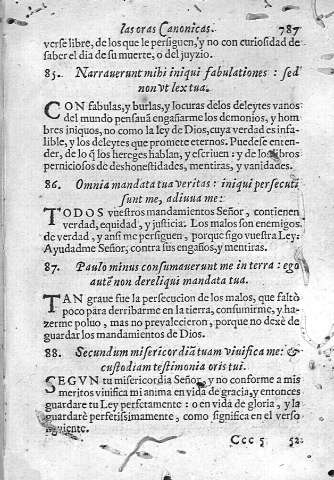 las oras Canonicas. 787
verse libre, de los que le persiguen, y no con curiosidad de
saber el dia de su muerte, o del juyzio.
85. Narrauerunt mihi iniqui fabulationes : sed
non vt lex tua.
CON fabulas, y burlas, y locuras de los deleytes vanos
del mundo pensauã engañarme los demonios, y hom
bres iniquos, no como la ley de Dios, cuya verdad es infa-
lible, y los deleytes que promete eternos. Puedese enten-
der, de lo q̃ los hereges hablan, y escriuen : y de los libros
perniciosos de deshonestidades, mentiras, y vanidades.
86. Omnia mandata tua veritas : iniqui persecuti
sunt me, adiuua me:
TODOS vuestros mandamientos Señor, contienen
verdad, equidad, y justicia. Los malos son enemigos
de verdad, y ansi me persiguen, porque sigo vuestra Ley:
Ayudadme Señor, contra sus engaños, y mentiras.
87. Paulo minus consumauerunt me in terra : ego
autẽ non dereliqui mandata tua.
TAN graue fue la persecucion de los malos, que faltò
poco para derribarme en la tierra, consumirme, y ha-
zerme poluo, mas no preualecieron, porque no dexè de
guardar los mandamientos de Dios.
88. Secundum misericordiã tuam viuifica me: &
custodiam testimonia oris tui.
SEGVN tu misericordia Señor, y no conforme a mis
meritos viuifica mi anima en vida de gracia, y entonces
guardare tu Ley perfetamente : o en vida de gloria, y la
guardarè perfetissimamente, como significa en el verso
siguiente.
Ccc 5 52.